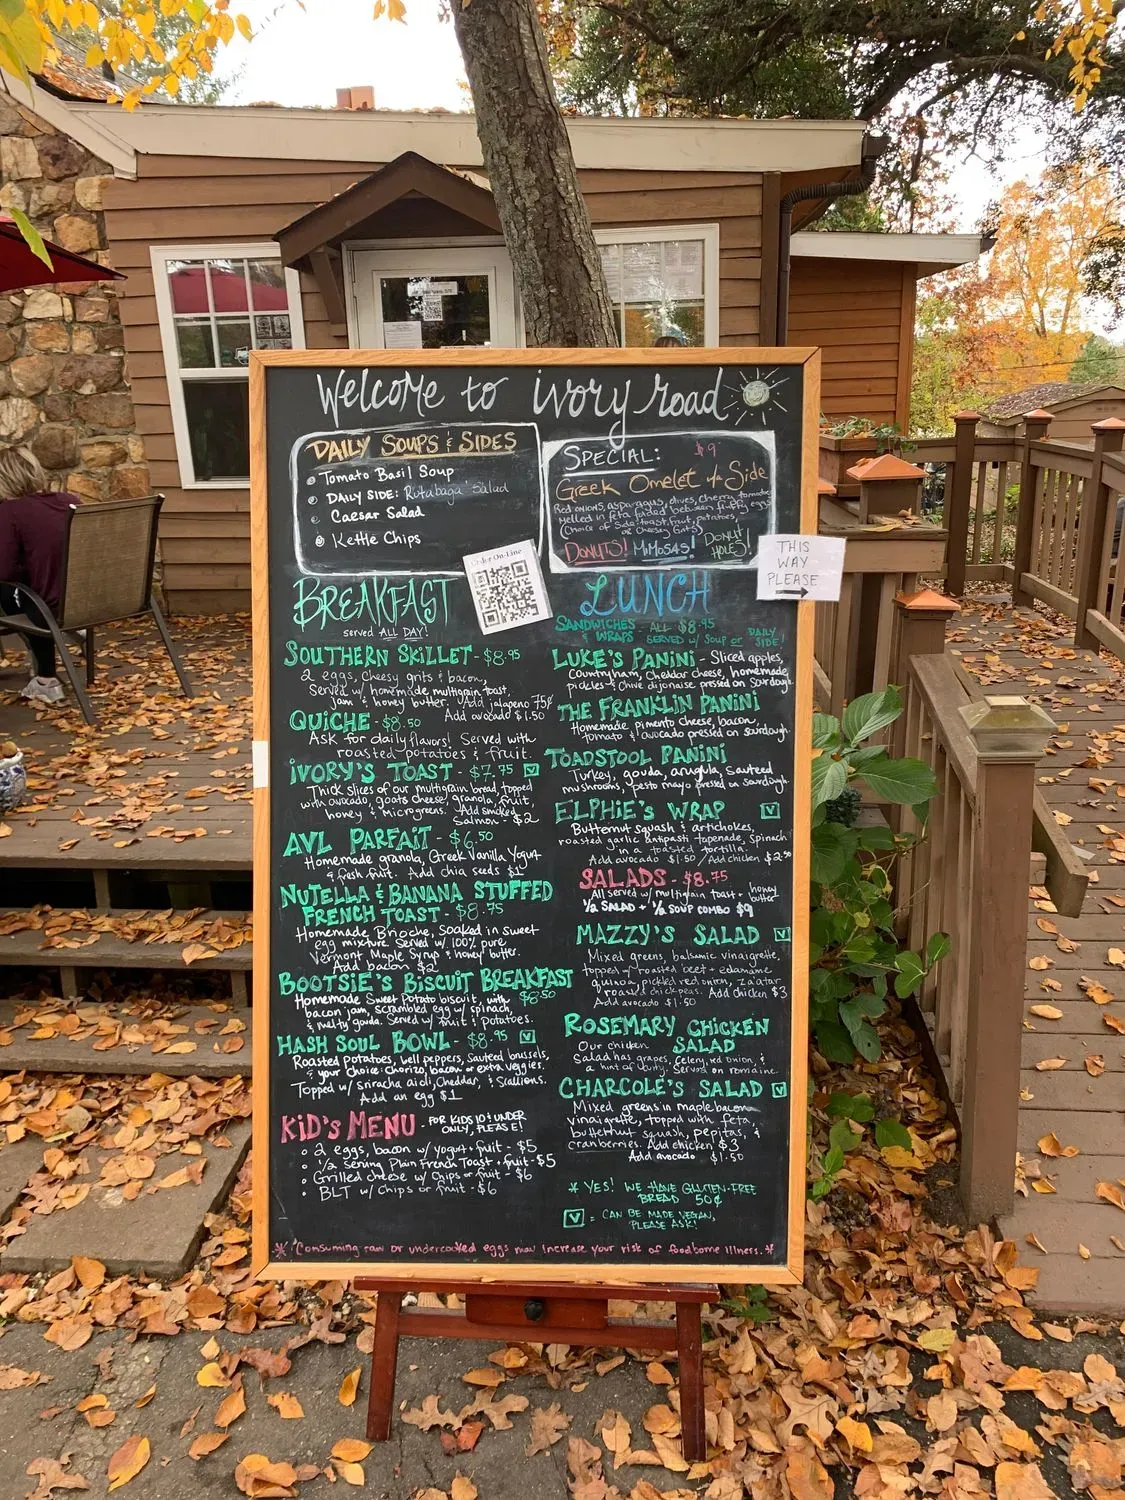 Welcome to ivory road
DAILY SOUPS & SIDES
Tomato Basil Soup
DAILY SIDE: Rutabaga Salad
Caesar Salad
Kettle Chips
SPECIAL: $9
Greek Omelet w/a Side
Red onions, asparagus, olives, cherry tomatoes
melted in feta folded between fluffy eggs
(choice of side: toast, fruit, potatoes,
or cheesy grits)
DONUTS! MIMOSAS! DONUT
HOLES!
Order On-Line
THIS
WAY
PLEASE
BREAKFAST
served ALL DAY!
SOUTHERN SKILLET - $8.95
2 eggs, cheesy grits & bacon,
Served w/ homemade multigrain toast,
jam & honey butter. Add jalapeno 75¢
Add avocado $1.50
QUICHE - $8.50
Ask for daily flavors! Served with
roasted potatoes & fruit.
IVORY'S TOAST - $7.75 V
Thick slices of our multigrain bread topped
with avocado, goats cheese, granola, fruit,
honey & microgreens. Add smoked
Salmon - $2
AVL PARFAIT - $6.50
Homemade granola, Greek Vanilla Yogurt
& fresh fruit. Add chia seeds $1
NUTELLA & BANANA STUFFED
FRENCH TOAST - $8.75
Homemade Brioche, Soaked in sweet
egg mixture. Served w/ 100% pure
Vermont Maple Syrup & honey butter.
Add bacon $2
BOOTSIE'S BISCUIT BREAKFAST
$8.50
Homemade Sweet Potato biscuit, with
bacon jam, scrambled egg w/ spinach,
& melty gouda. Served w/ fruit & potatoes.
HASH SOUL BOWL - $8.95 V
Roasted potatoes, bell peppers, sauteed brussels,
& your choice: chorizo, bacon or extra veggies.
Topped w/ sriracha aioli, Cheddar, & Scallions.
Add an egg $1
KID'S MENU - FOR KIDS 10 & UNDER
ONLY, PLEASE!
2 eggs, bacon w/ yogurt + fruit - $5
1/2 Serving Plain French Toast + fruit - $5
Grilled cheese w/ chips or fruit - $6
BLT w/ chips or fruit - $6
LUNCH
SANDWICHES & WRAPS - ALL $8.95
SERVED w/ Soup or DAILY SIDE!
LUKE'S PANINI - Sliced apples,
Country ham, Cheddar cheese, homemade
pickles & Chive dijonaise pressed on sourdough
THE FRANKLIN PANINI
Homemade pimento cheese, bacon,
tomato & avocado pressed on sourdough
TOADSTOOL PANINI
Turkey, gouda, arugula, sauteed
mushrooms, & pesto mayo pressed on sourdough.
ELPHIE'S WRAP V
Butternut squash & artichokes,
roasted garlic antipasti tapenade, spinach
in a toasted tortilla.
Add avocado $1.50 / Add chicken $2.50
SALADS - $8.75
All served w/ multigrain toast + honey butter
1/2 SALAD + 1/2 SOUP COMBO $9
MAZZY'S SALAD V
Mixed greens, balsamic vinaigrette,
topped w/ roasted beet + edamame
quinoa, pickled red onion, za'atar
roasted chickpeas. Add chicken $3
Add avocado $1.50
ROSEMARY CHICKEN
SALAD
Our chicken
Salad has grapes, celery, red onion, &
a hint of curry. Served on romaine.
CHARCOLE'S SALAD V
Mixed greens in maple bacon
vinaigrette, topped with feta,
butternut squash, pepitas, &
cranberries. Add chicken $3
Add avocado $1.50
* YES! WE HAVE GLUTEN-FREE
BREAD 50¢
V = CAN BE MADE VEGAN,
PLEASE ASK!
* Consuming raw or undercooked eggs may increase your risk of foodborne illness. *